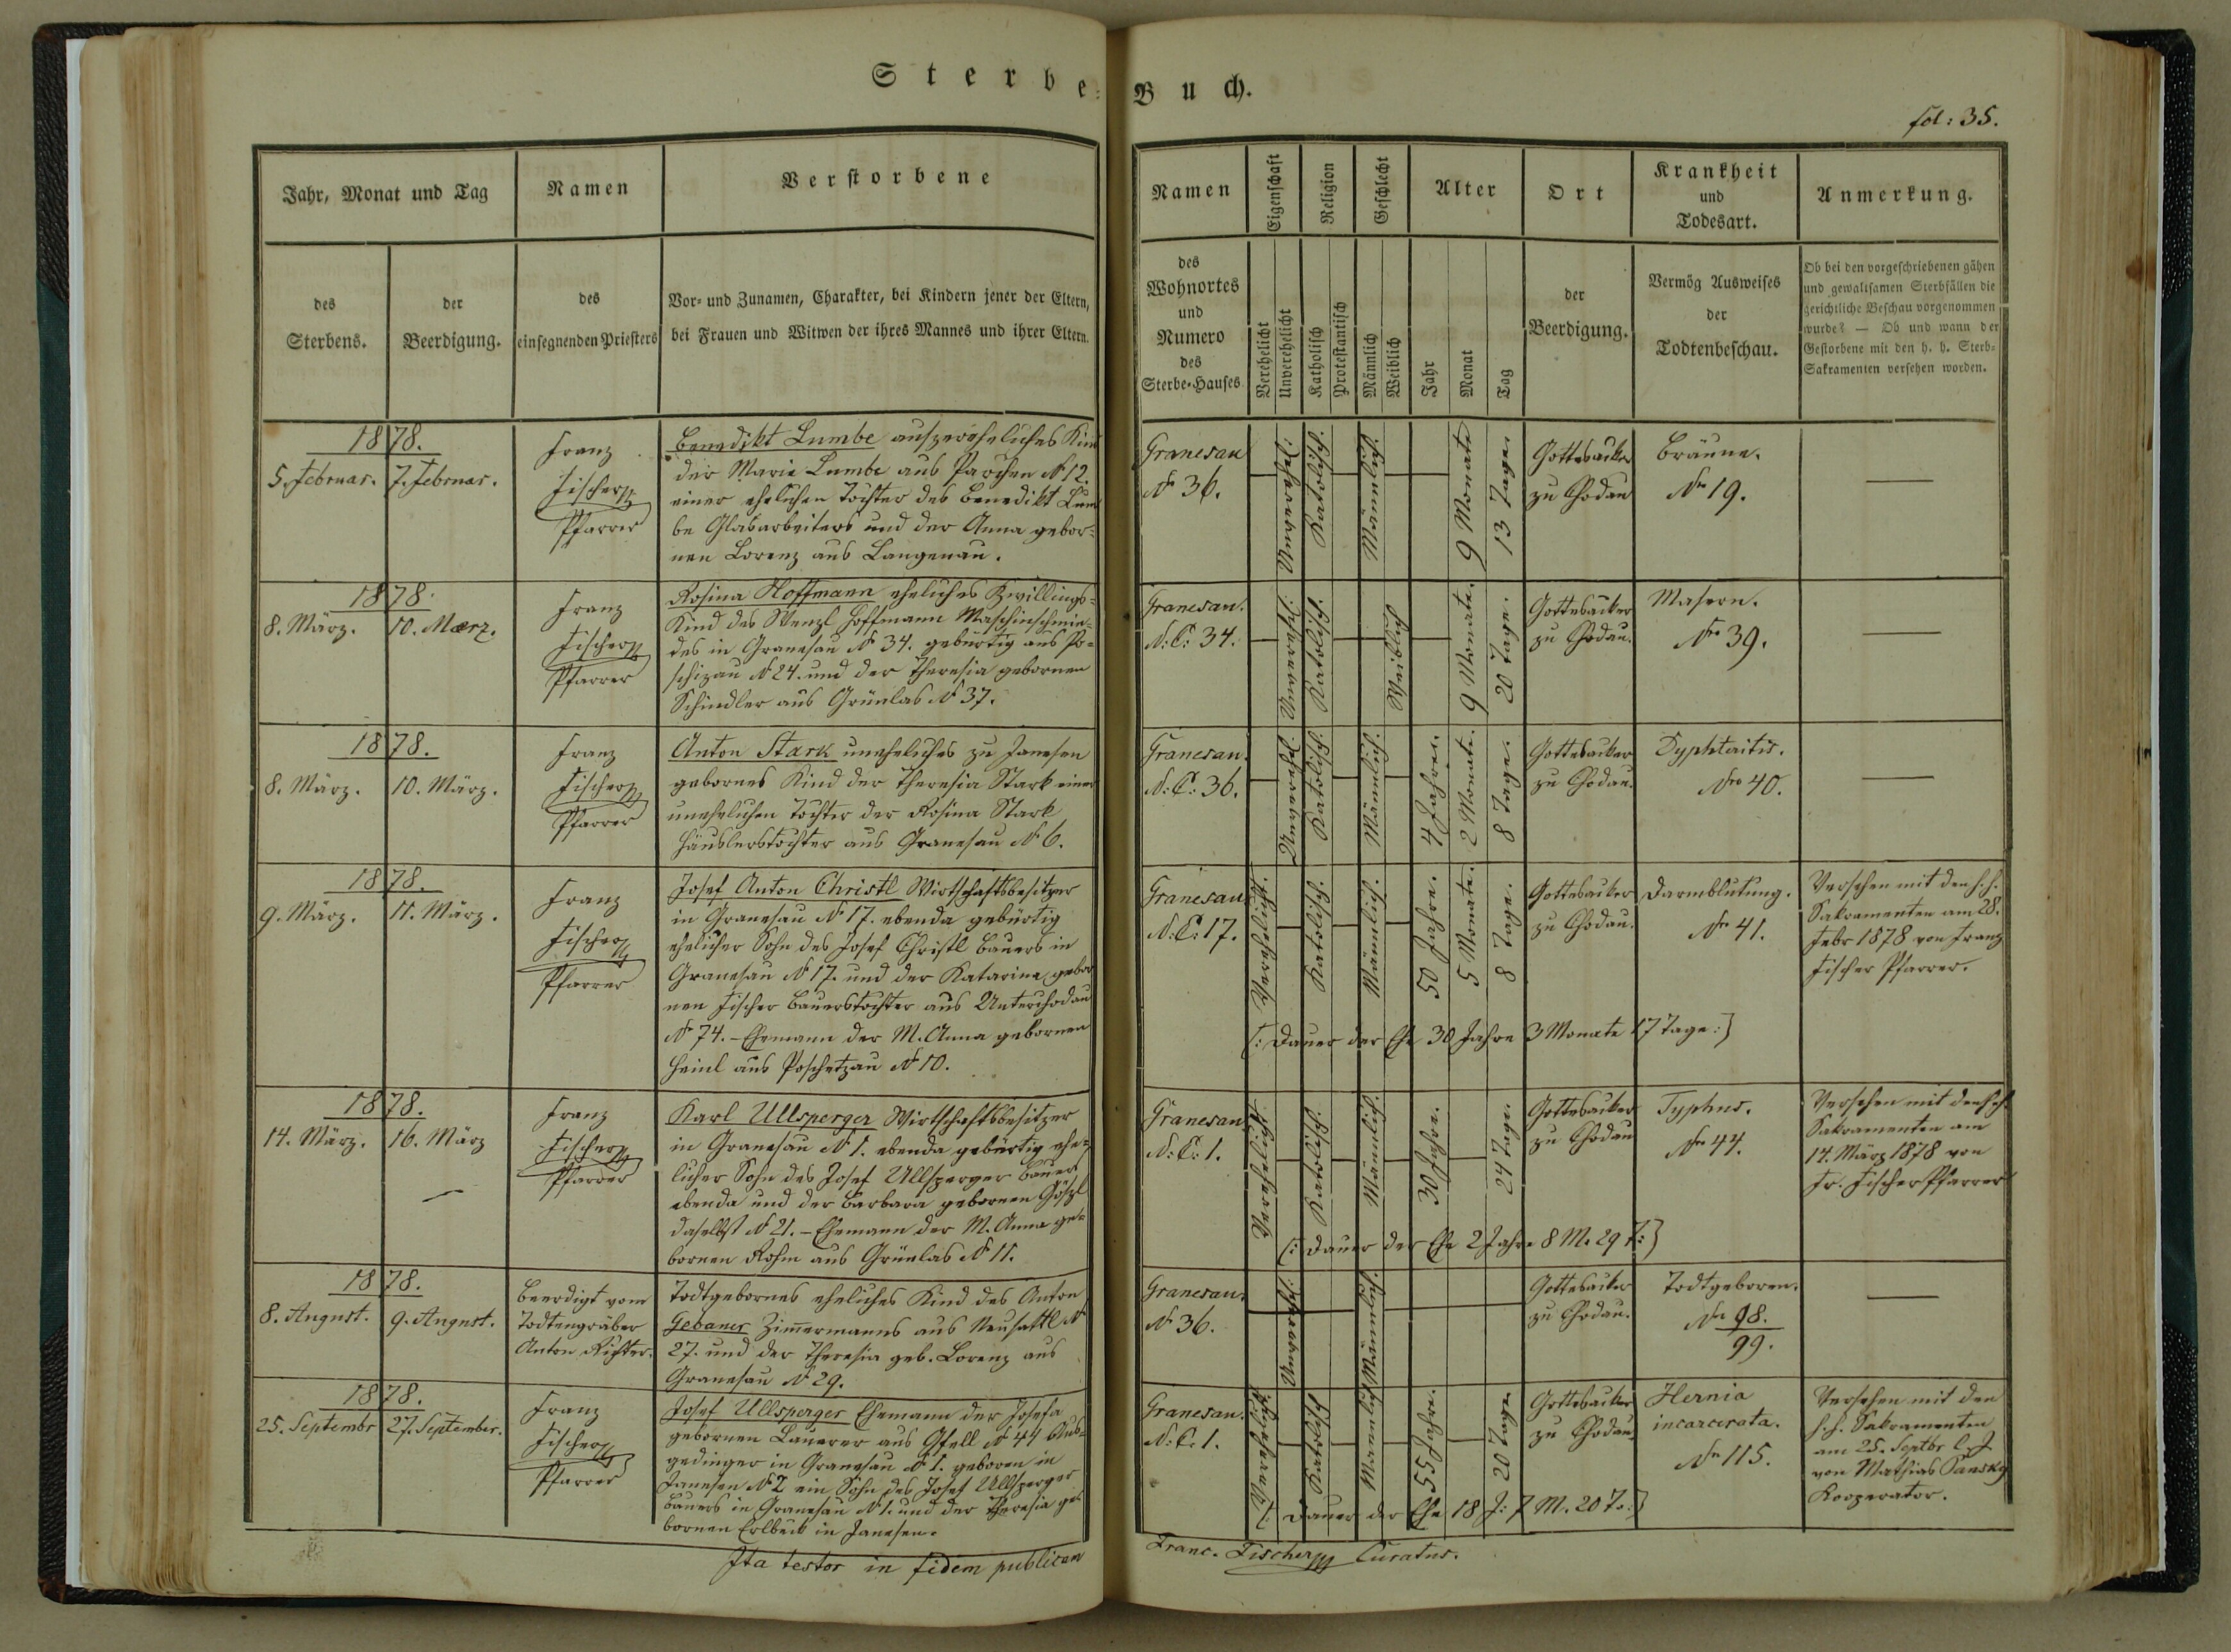 Sterbe-
Jahr, Monat und Tag
Namen
Verstorbene
des
Sterbens.
der
Beerdigung.
des
einsegnenden Priesters
Vor- und Zunamen, Charakter, bei Kindern jener der Eltern,
bei Frauen und Witwen der ihres Mannes und ihrer Eltern.
1878.
5. Februar. 7. Februar.
Franz
Fischer
Pfarrer
Benedikt Lumbe außereheliches Kind
der Marie Lumbe aus Parchen N 12.
einer ehelichen Tochter des Benedikt Lum
be Glasarbeiters und der Anna gebor-
nen Lorenz aus Langenau.
1878.
8. März. 10. Maerz.
Franz
Fischer
Pfarrer
Rosina Hoffmann eheliches Zwillings-
Kind des Wenzl Hoffmann Maschinschmie-
des in Granesau N 34. gebürtig aus Po-
schizau N 24. und der Theresia gebornen
Schindler aus Grünlas N 37.
1878.
8. März. 10. März.
Franz
Fischer
Pfarrer
Anton Stark uneheliches zu Janesen
gebornes Kind der Theresia Stark einer
unehelichen Tochter der Rosina Stark
Häuslerstochter aus Granesau N 6.
1878.
9. März. 11. März.
Franz
Fischer
Pfarrer
Josef Anton Christl Wirtschaftsbesitzer
in Granesau N 17. ebenda gebürtig
ehelicher Sohn des Josef Christl Bauers in
Granesau N 17. und der Katarina gebor
nen Fischer Bauerstochter aus Unterchodau
N 74. - Ehemann der M. Anna gebornen
Heinl aus Poschetzau N 10.
1878.
14. März. 16. März
Franz
Fischer
Pfarrer
Karl Ullsperger Wirtschaftsbesitzer
in Granesau N 1. ebenda gebürtig ehe-
licher Sohn des Josef Ullsperger Bauers
ebenda und der Barbara gebornen
daselbst N 21. - Ehemann der M. Anna ge-
bornen Rohm aus Grünlas N 11.
1878.
8. August. 9. August.
Beerdigt vom
Todtengräber
Anton Richter.
Todtgebornes eheliches Kind des Anton
Gebauer Zimmermanns aus Neusattl N
27. und der Theresia geb. Lorenz aus
Granesau N 29.
1878.
25. Septembr 27. September.
Franz
Fischer
Pfarrer
Josef Ullsperger Ehemann der Josefa
gebornen Lauerer aus Gfell N 44 Aus-
gedinger in Granesau N 1. geboren in
Janesen N 2 ein Sohn des Josef Ullsperger
Bauers in Granesau N 1. und der Theresia ge-
bornen Erlbeck in Janesen.
Ita testor in fidem publicam
Buch.
fol: 35.
Namen
Eigenschaft
Religion
Geschlecht
Alter
Ort
Krankheit
und
Todesart.
Anmerkung.
des
Wohnortes
und
Numero
des
Sterbe-Hauses
Verehelicht
Unverehelicht
Katholisch
Protestantisch
Männlich
Weiblich
Jahr
Monat
Tag
der
Beerdigung.
Vermög Ausweises
der
Todtenbeschau.
Ob bei den vorgeschriebenen gähen
und gewaltsamen Sterbfällen die
gerichtliche Beschau vorgenommen
wurde? — Ob und wann der
Gestorbene mit den h. h. Sterb-
Sakramenten versehen worden.
Granesau
N 36.
Unverehel:
Katolisch.
Männlich.
9 Monate
13 Tage.
Gottesacker
zu Chodau
Bräune.
Nr 19.
Granesau.
N: C: 34.
Unverehel:
Katolisch.
Weiblich
9 Monate.
20 Tage.
Gottesacker
zu Chodau.
Masern.
Nro 39.
Granesau.
N: C: 36.
Unverehel.
Katolisch.
Männlich.
4 Jahre.
2 Monate.
8 Tage.
Gottesacker
zu Chodau.
Dyphteritis.
Nro 40.
Granesau
N: C: 17.
Verehelicht.
Katolisch.
Männlich.
50 Jahre.
5 Monate.
8 Tage.
Gottesacker
zu Chodau.
Darmblutung.
Nr 41.
Versehen mit den h. h.
Sakramenten am 28.
Febr 1878 von Franz
Fischer Pfarrer.
[: Dauer der Ehe 30 Jahre 3 Monate 17 Tage :]
Granesau
N: C: 1.
Verehelicht.
Katolisch.
Männlich.
30 Jahre.
24 Tage.
Gottesacker
zu Chodau
Typhus.
Nro 44.
Versehen mit den h. h.
Sakramenten am
14. März 1878 von
Fr. Fischer Pfarrer
[: Dauer der Ehe 2 Jahre 8 M. 29 T:]
Granesau.
N 36.
Unverehl:
Männlich.
Gottesacker
zu Chodau.
Todtgeboren.
Nr 98.
99.
Granesau.
N: C: 1.
Verehelicht.
Katolisch
Männlich
55 Jahre.
20 Tage
Gottesacker
zu Chodau.
Hernia
incarcerata.
Nr 115.
Versehen mit den
h. h. Sakramenten
am 25. Septbr l. J.
von Mathias Sansky
Kooperator.
[: Dauer der Ehe 18 J: 7 M. 20 T. :]
Franc. Fischer Curatus.